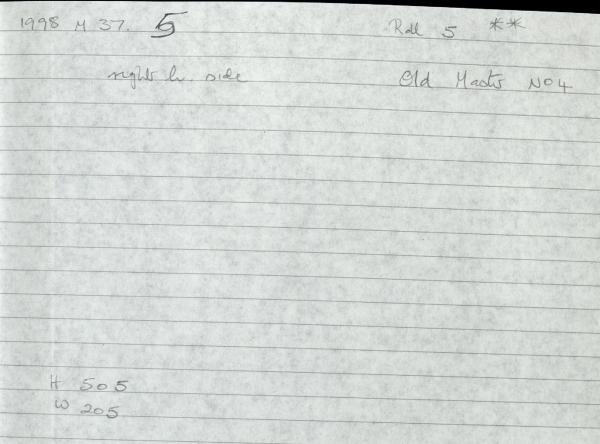 1998 M 37. 5 Roll 5 **
right h. side Old Master No 4
H 505
W 205